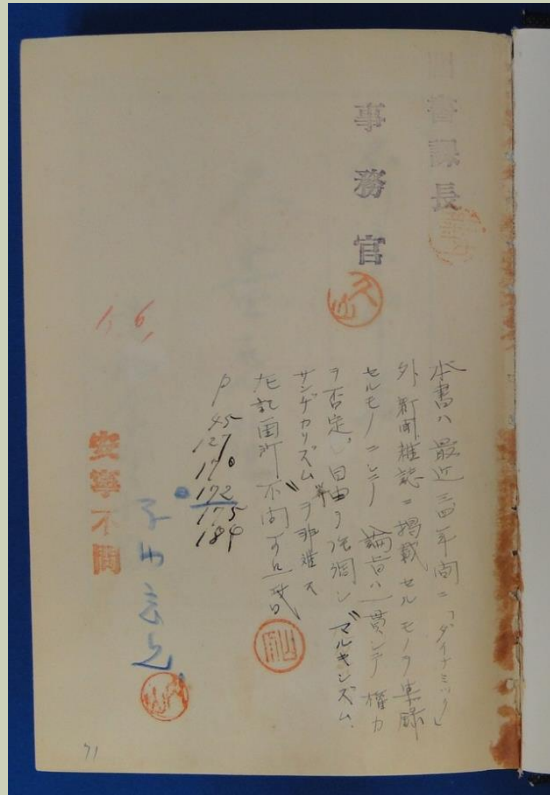 書課長
事務官
本書ハ最近三四年間ニ「ダイナミツク」
外新聞雑誌ニ掲載セルモノヲ集録
セルモノニシテ論旨ハ一貫シテ権力
ヲ否定、自由ヲ強調シ"マルキシズム、
サンヂカリズム"等ヲ非難ス
左記箇所不問可然哉
P
45
127
170
172
175
184
1, 6,
安寧不問
71